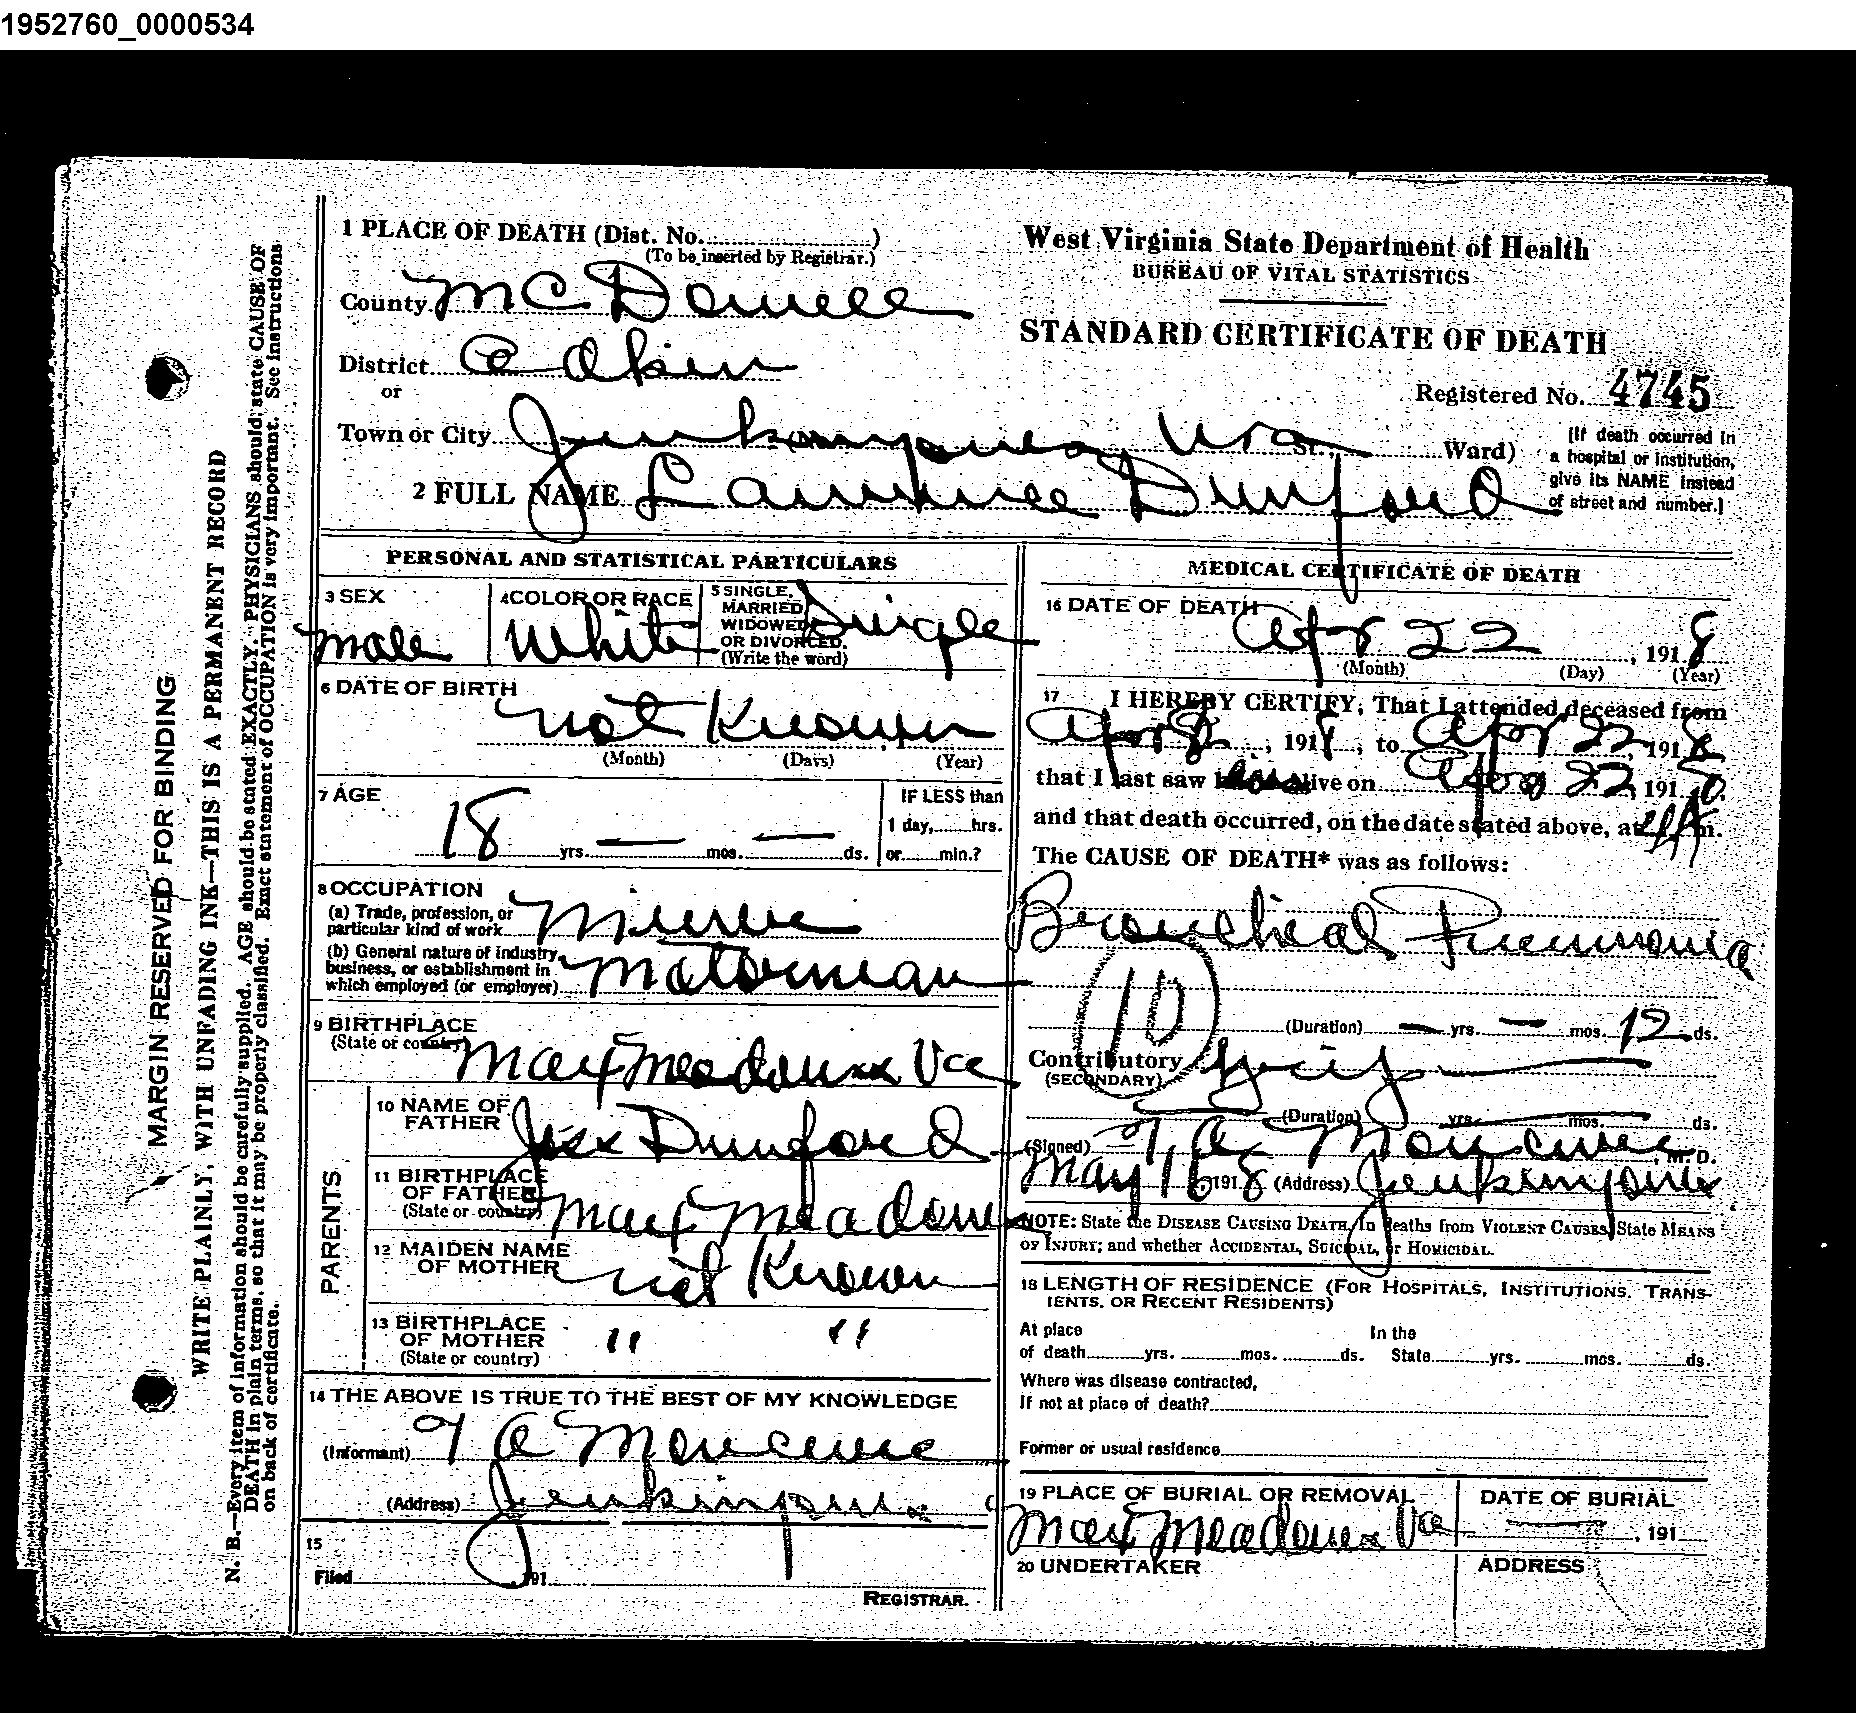 1952760_0000534
1 PLACE OF DEATH (Dist. No. )
(To be inserted by Registrar.)
County McDowell
District Adkin
or
Town or City Jenkinjones, W Va St., Ward)
2 FULL NAME Lawrence Dunford
West Virginia State Department of Health
BUREAU OF VITAL STATISTICS
STANDARD CERTIFICATE OF DEATH
Registered No. 4745
[If death occurred in
a hospital or institution,
give its NAME instead
of street and number.]
PERSONAL AND STATISTICAL PARTICULARS
3 SEX
male
4 COLOR OR RACE
White
5 SINGLE,
MARRIED,
WIDOWED,
OR DIVORCED.
(Write the word)
Single
6 DATE OF BIRTH
not Known
(Month) (Days) (Year)
7 AGE
18 yrs. — mos. — ds.
IF LESS than
1 day, hrs.
or min.?
8 OCCUPATION
(a) Trade, profession, or
particular kind of work
(b) General nature of industry,
business, or establishment in
which employed (or employer) Motorman
9 BIRTHPLACE
(State or country) Max Meadows Va
PARENTS
10 NAME OF
FATHER Jess Dunford
11 BIRTHPLACE
OF FATHER
(State or country) Max Meadows
12 MAIDEN NAME
OF MOTHER not Known
13 BIRTHPLACE
OF MOTHER " "
(State or country)
14 THE ABOVE IS TRUE TO THE BEST OF MY KNOWLEDGE
(Informant) T A Moncure
(Address) Jenkinjones
15
Filed 191
REGISTRAR.
MEDICAL CERTIFICATE OF DEATH
16 DATE OF DEATH
Apr 22, 1918
(Month) (Day) (Year)
17 I HEREBY CERTIFY, That I attended deceased from
Apr, 1918, to Apr 22 1918
that I last saw h alive on Apr 22, 1918
and that death occurred, on the date stated above, at m.
The CAUSE OF DEATH* was as follows:
Bronchial Pneumonia
10
(Duration) — yrs. — mos. 12 ds.
Contributory
(SECONDARY)
(Duration) yrs. mos. ds.
(Signed) T. A. Moncure, M. D.
May 16 1918 (Address) Jenkinjones
NOTE: State the DISEASE CAUSING DEATH, In deaths from VIOLENT CAUSES, State MEANS
OF INJURY; and whether ACCIDENTAL, SUICIDAL, or HOMICIDAL.
18 LENGTH OF RESIDENCE (FOR HOSPITALS, INSTITUTIONS, TRANS-
IENTS, OR RECENT RESIDENTS)
At place In the
of death yrs. mos. ds. State yrs. mos. ds.
Where was disease contracted,
If not at place of death?
Former or usual residence
19 PLACE OF BURIAL OR REMOVAL
Max Meadows Va
DATE OF BURIAL
—, 191
20 UNDERTAKER
ADDRESS
MARGIN RESERVED FOR BINDING
WRITE PLAINLY, WITH UNFADING INK—THIS IS A PERMANENT RECORD
N. B.—Every item of information should be carefully supplied. AGE should be stated EXACTLY. PHYSICIANS should state CAUSE OF
DEATH in plain terms, so that it may be properly classified. Exact statement of OCCUPATION is very important. See instructions
on back of certificate.